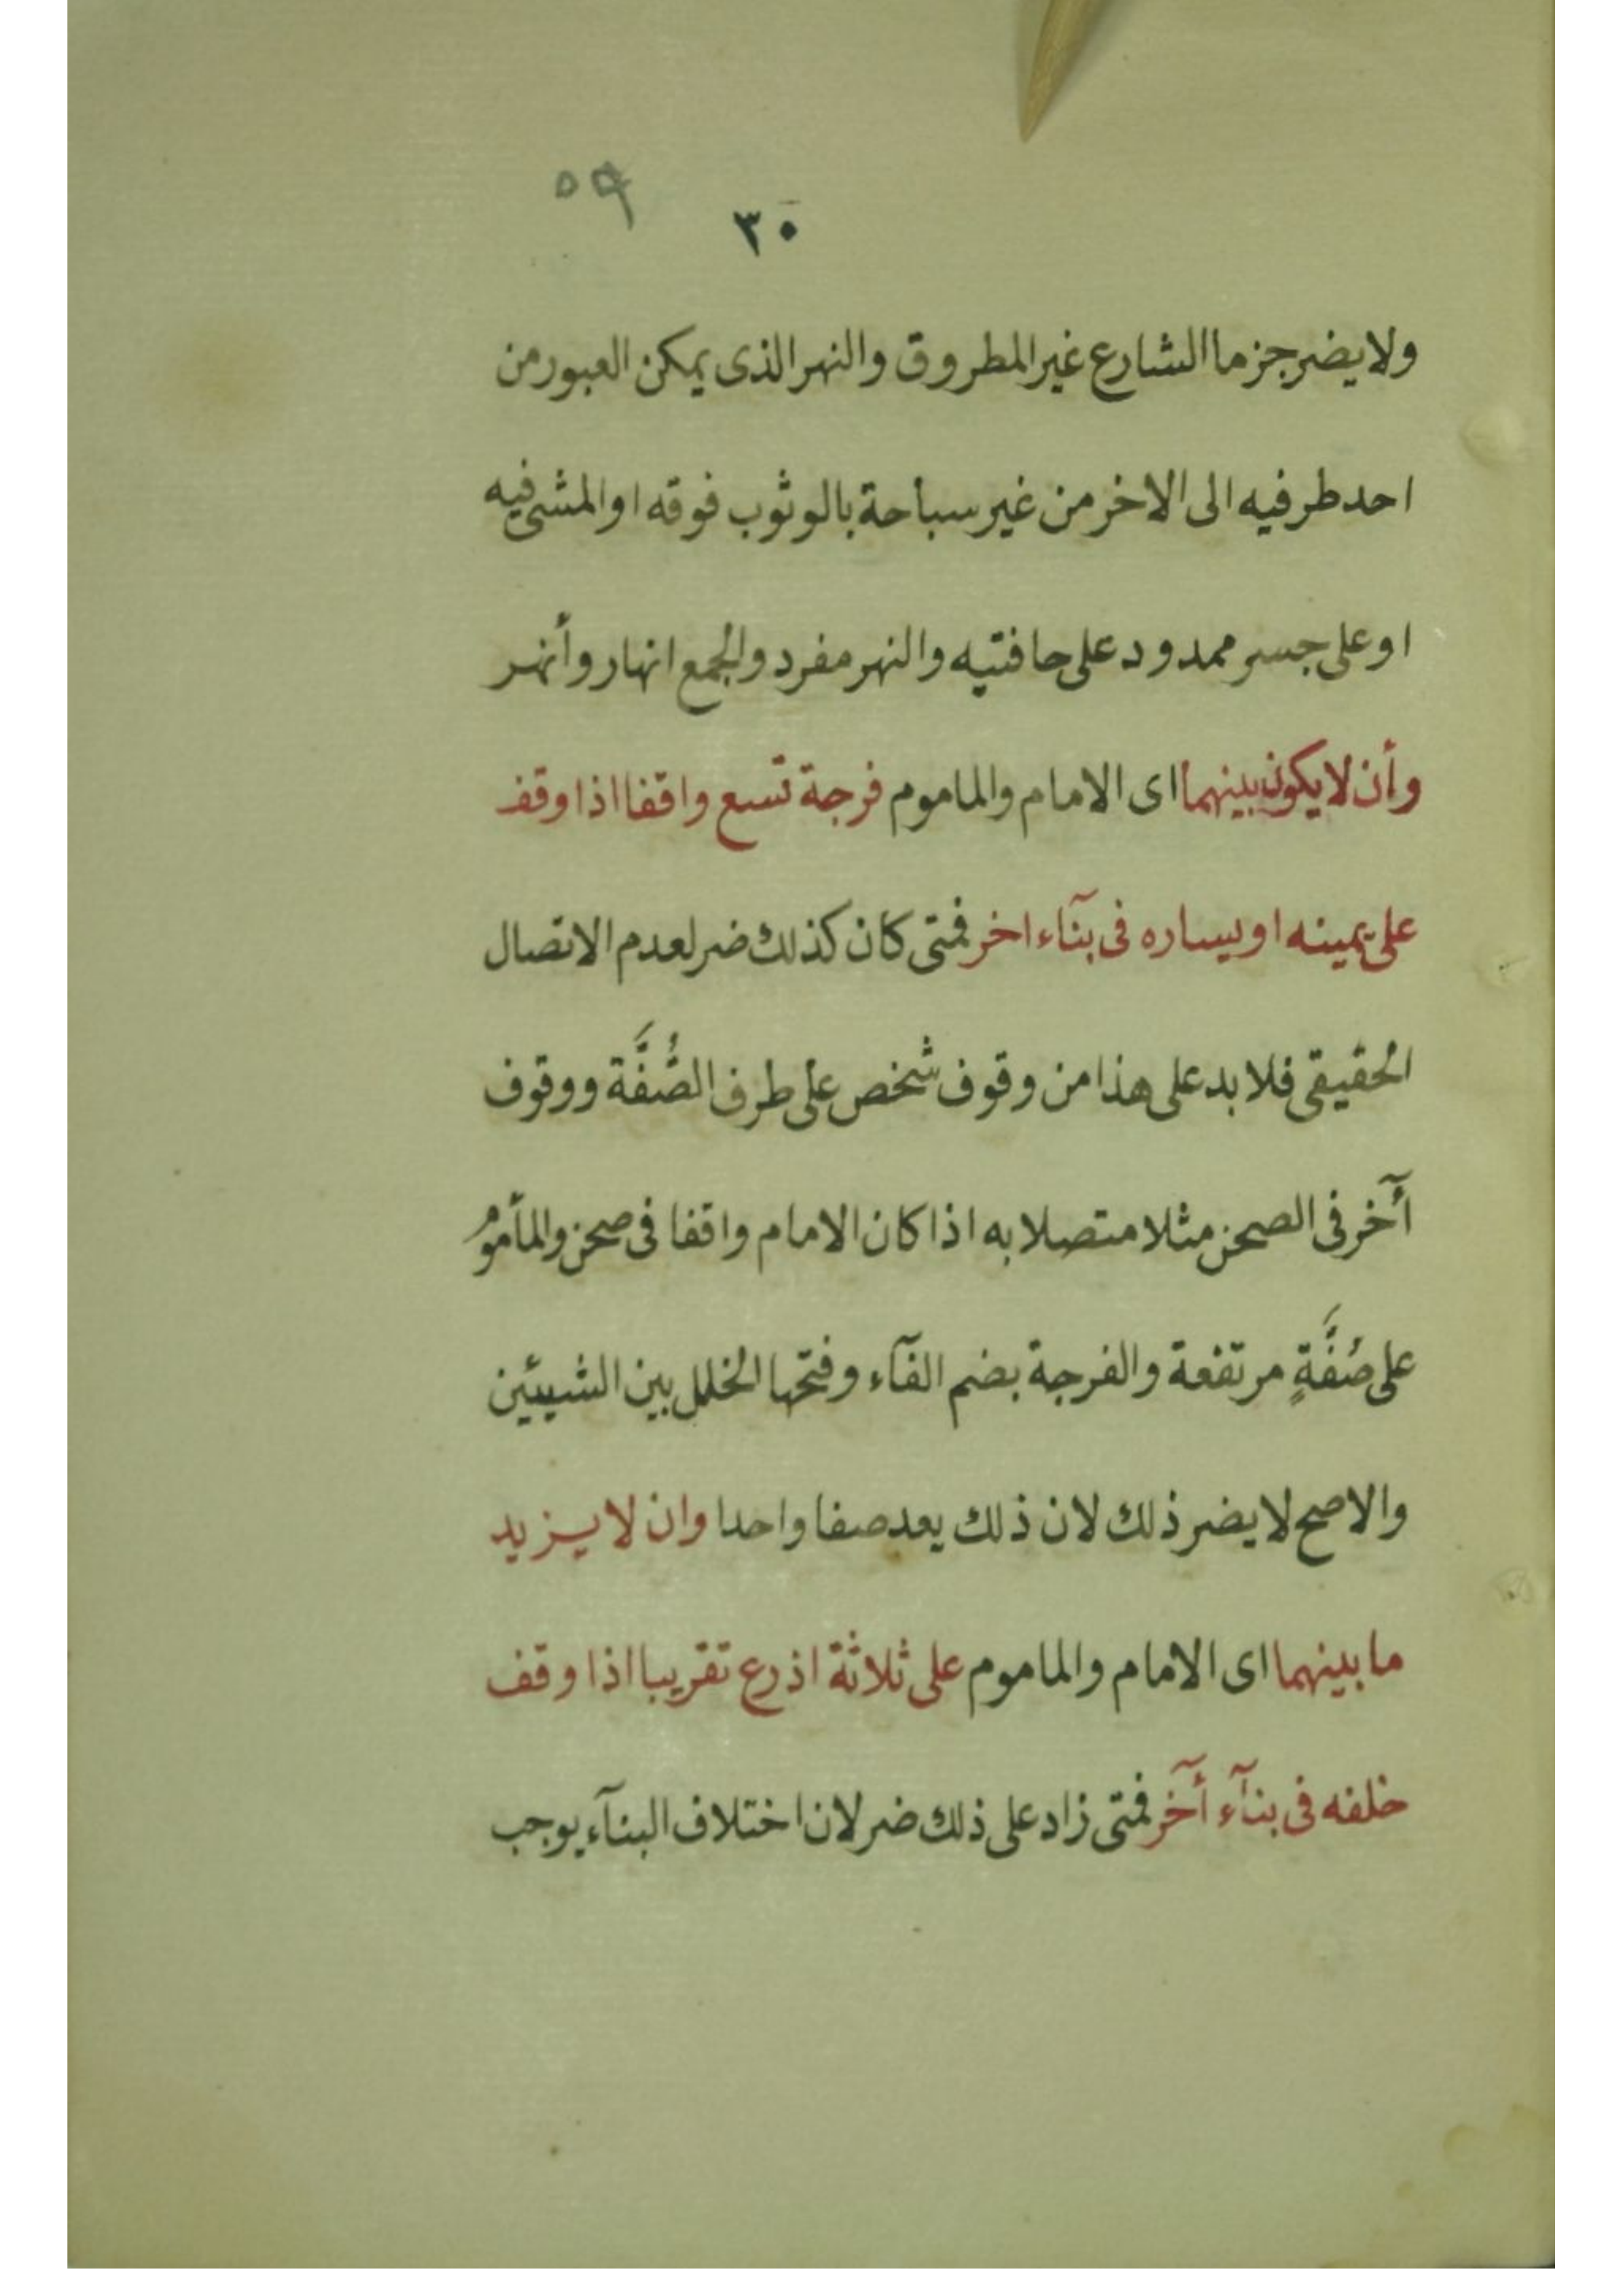 ٥٩
٣٠
ولا يضر جزما الشارع غير المطروق والنهر الذى يمكن العبور من
احد طرفيه الى الاخر من غير سباحة بالوثوب فوقه او المشى فيه
او على جسر ممدود على حافتيه والنهر مفرد والجمع انهار وأنهر
وأن لا يكون بينهما اى الامام والماموم فرجة تسع واقفا اذا وقف
على يمينه او يساره فى بنآء اخر فمتى كان كذلك ضر لعدم الاتصال
الحقيقى فلا بد على هذا من وقوف شخص على طرف الصُّفَّة ووقوف
أخر فى الصحن مثلا متصلا به اذا كان الامام واقفا فى صحن والمأموم
على صُفَّةٍ مرتفعة والفرجة بضم الفآء وفتحها الخلل بين الشيئين
والاصح لا يضر ذلك لان ذلك يعد صفا واحدا وان لا يزيد
ما بينهما اى الامام والماموم على ثلاثة اذرع تقريبا اذا وقف
خلفه فى بنآء أخر فمتى زاد على ذلك ضر لان اختلاف البنآء يوجب